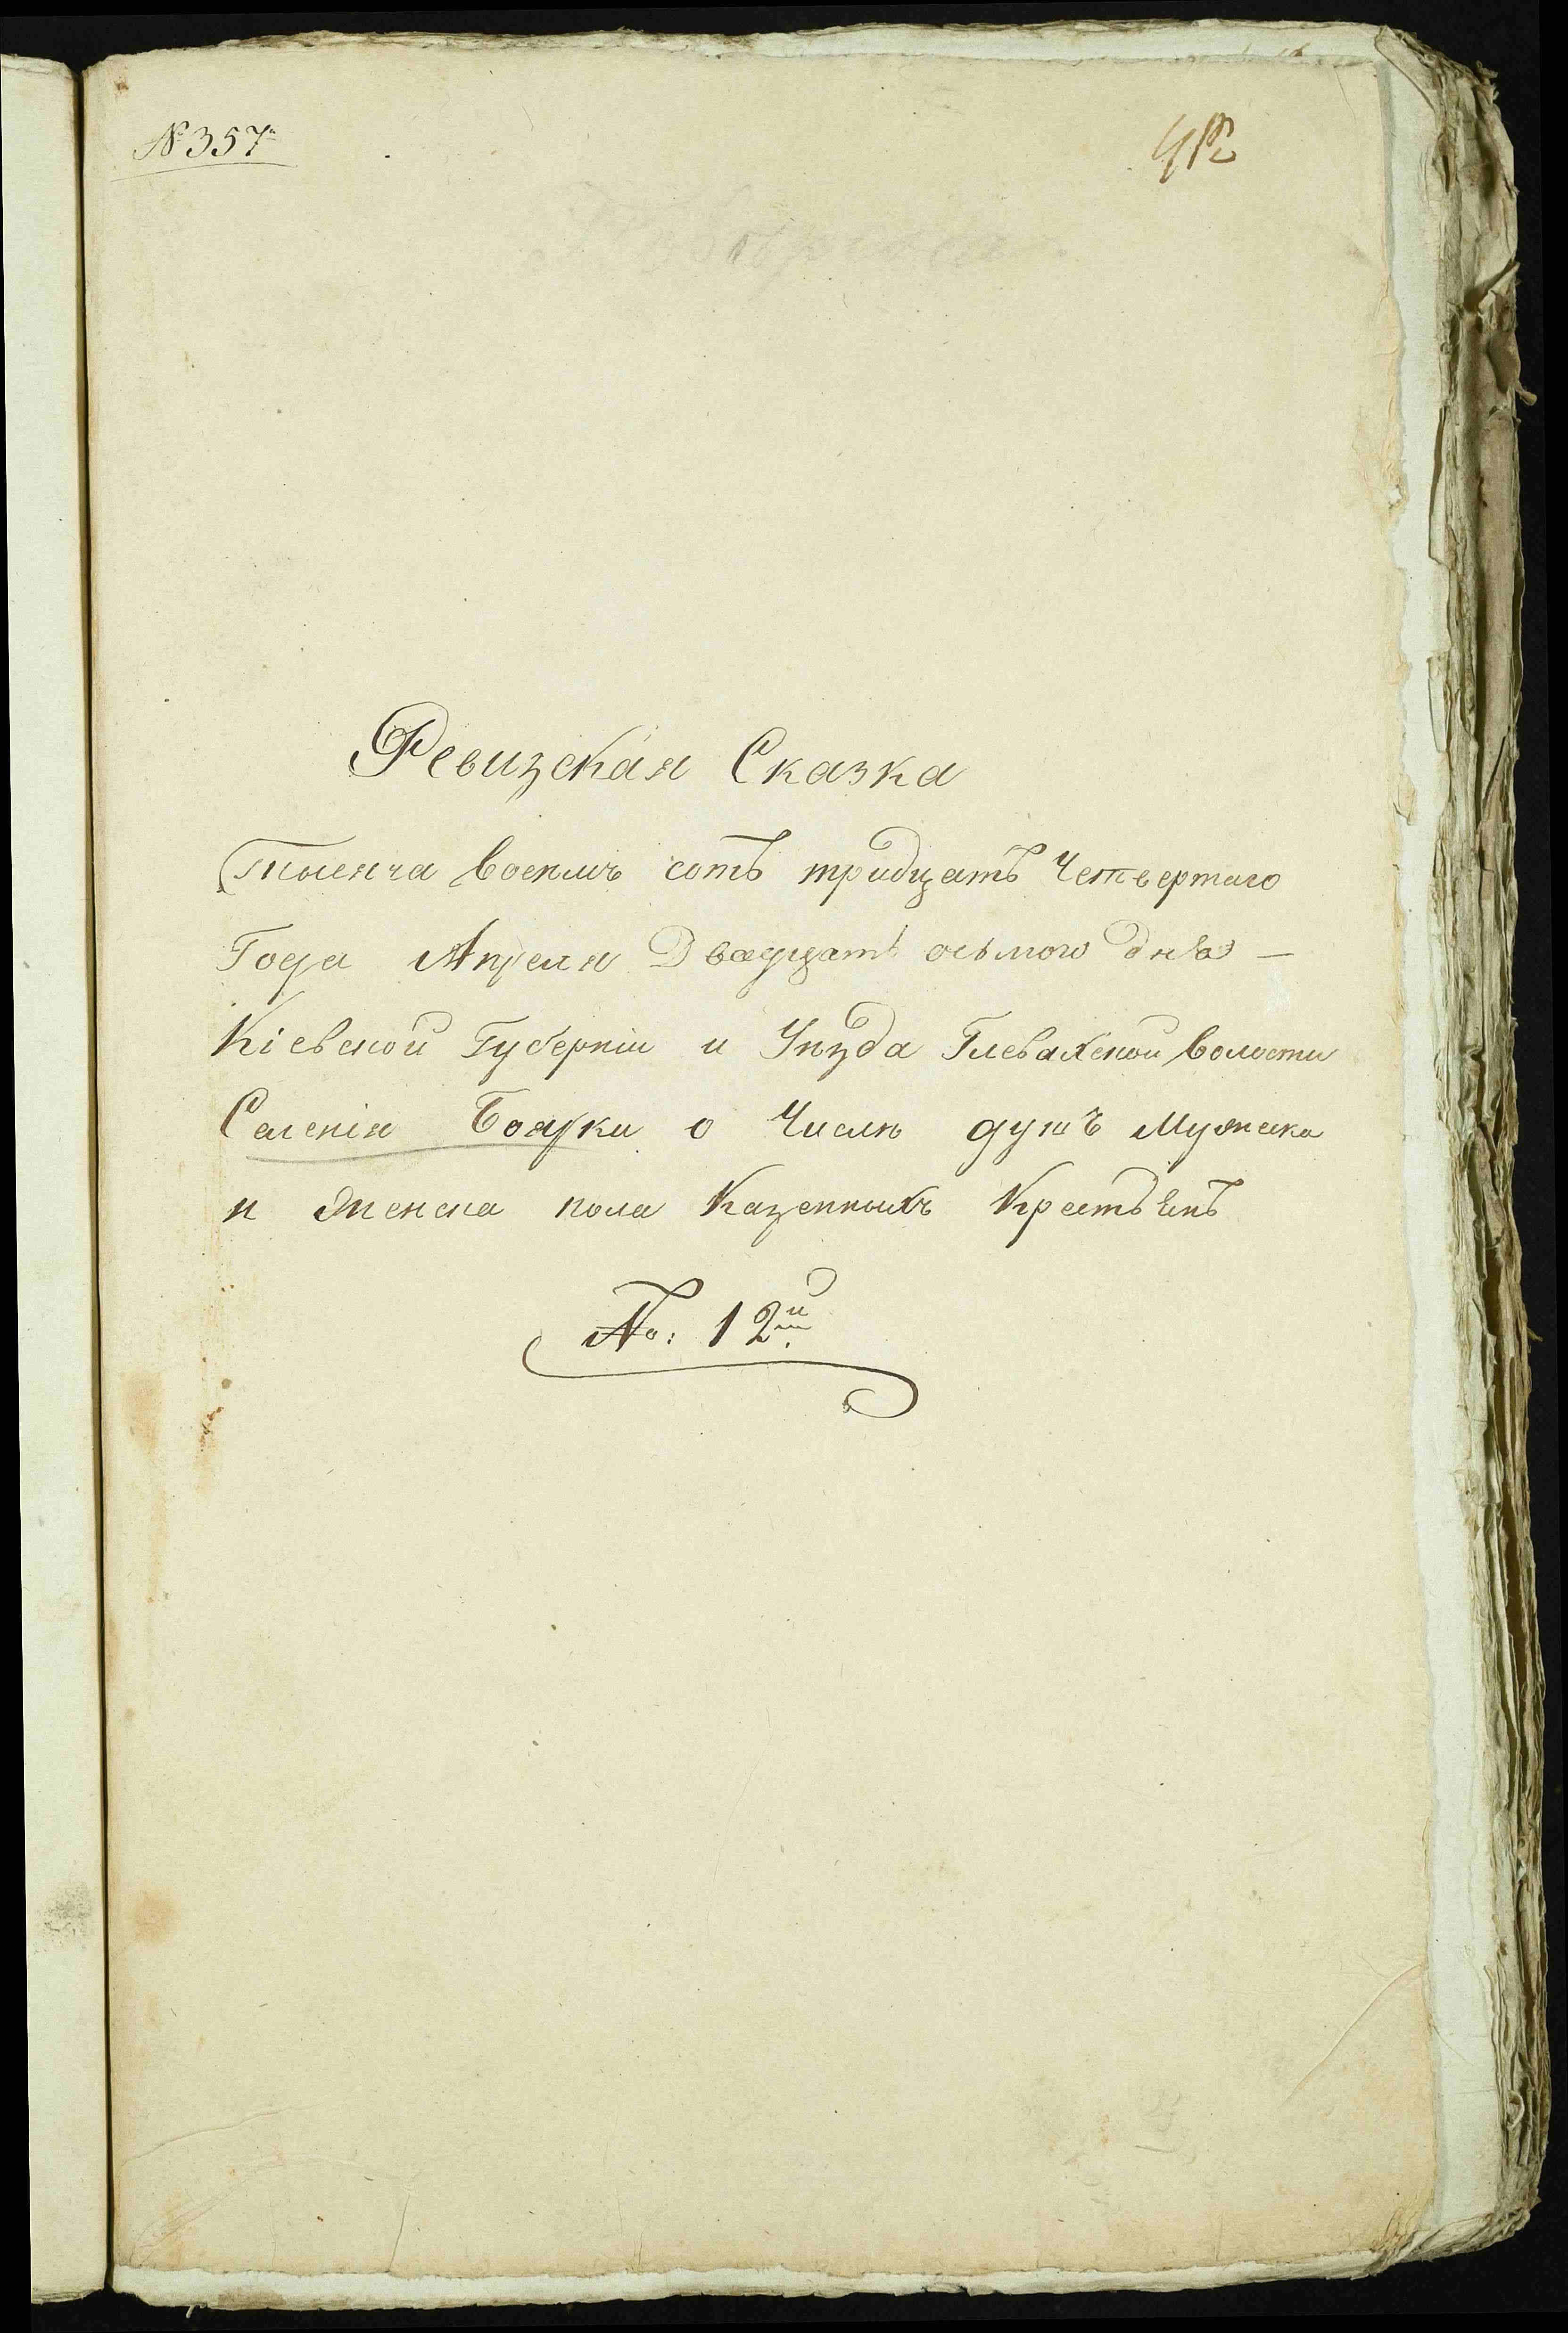 № 357й
Ревизская Сказка
Тысяча восемъ сотъ тридцать Четвертаго
Года Апреля Двадцать осьмого дня —
Кіевской Губерніи и Уѣзда Глевахской волости
Селенія Боярки о Числѣ душъ Мужеска
и женска пола Казенныхъ Крестьянъ
No: 12й